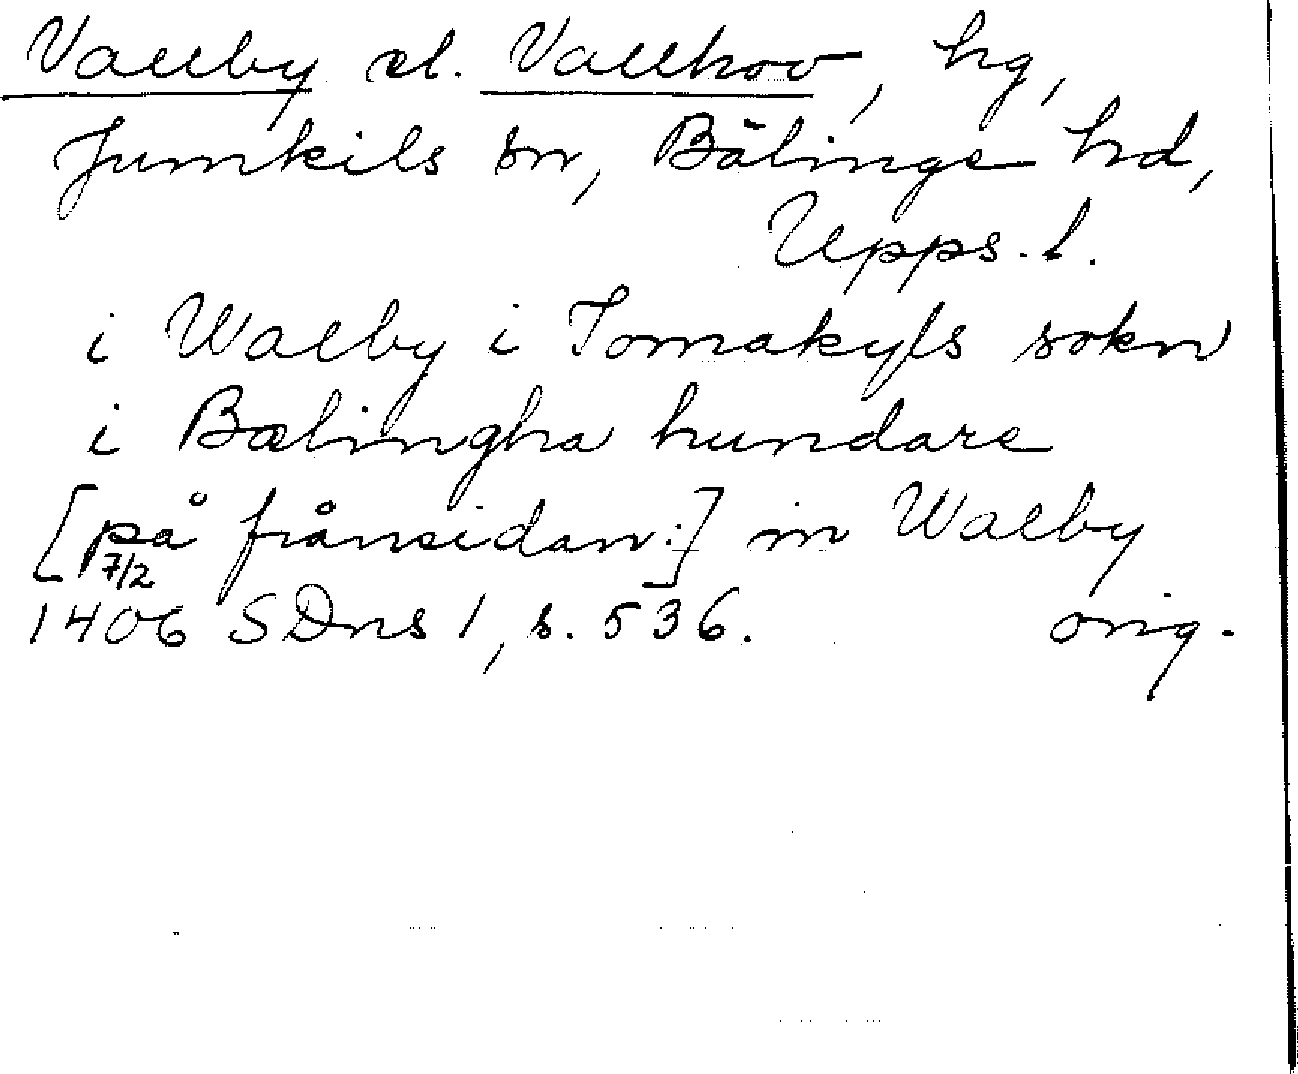 Vallby el. Vallhov, hg,
Jumkils sn, Bälinge hd,
Upps. l.
i Walby i Jomakyls sokn
i Bælingha hundare
[på frånsidan:] in Walby
7/2
1406 SDns 1, s. 536. orig.